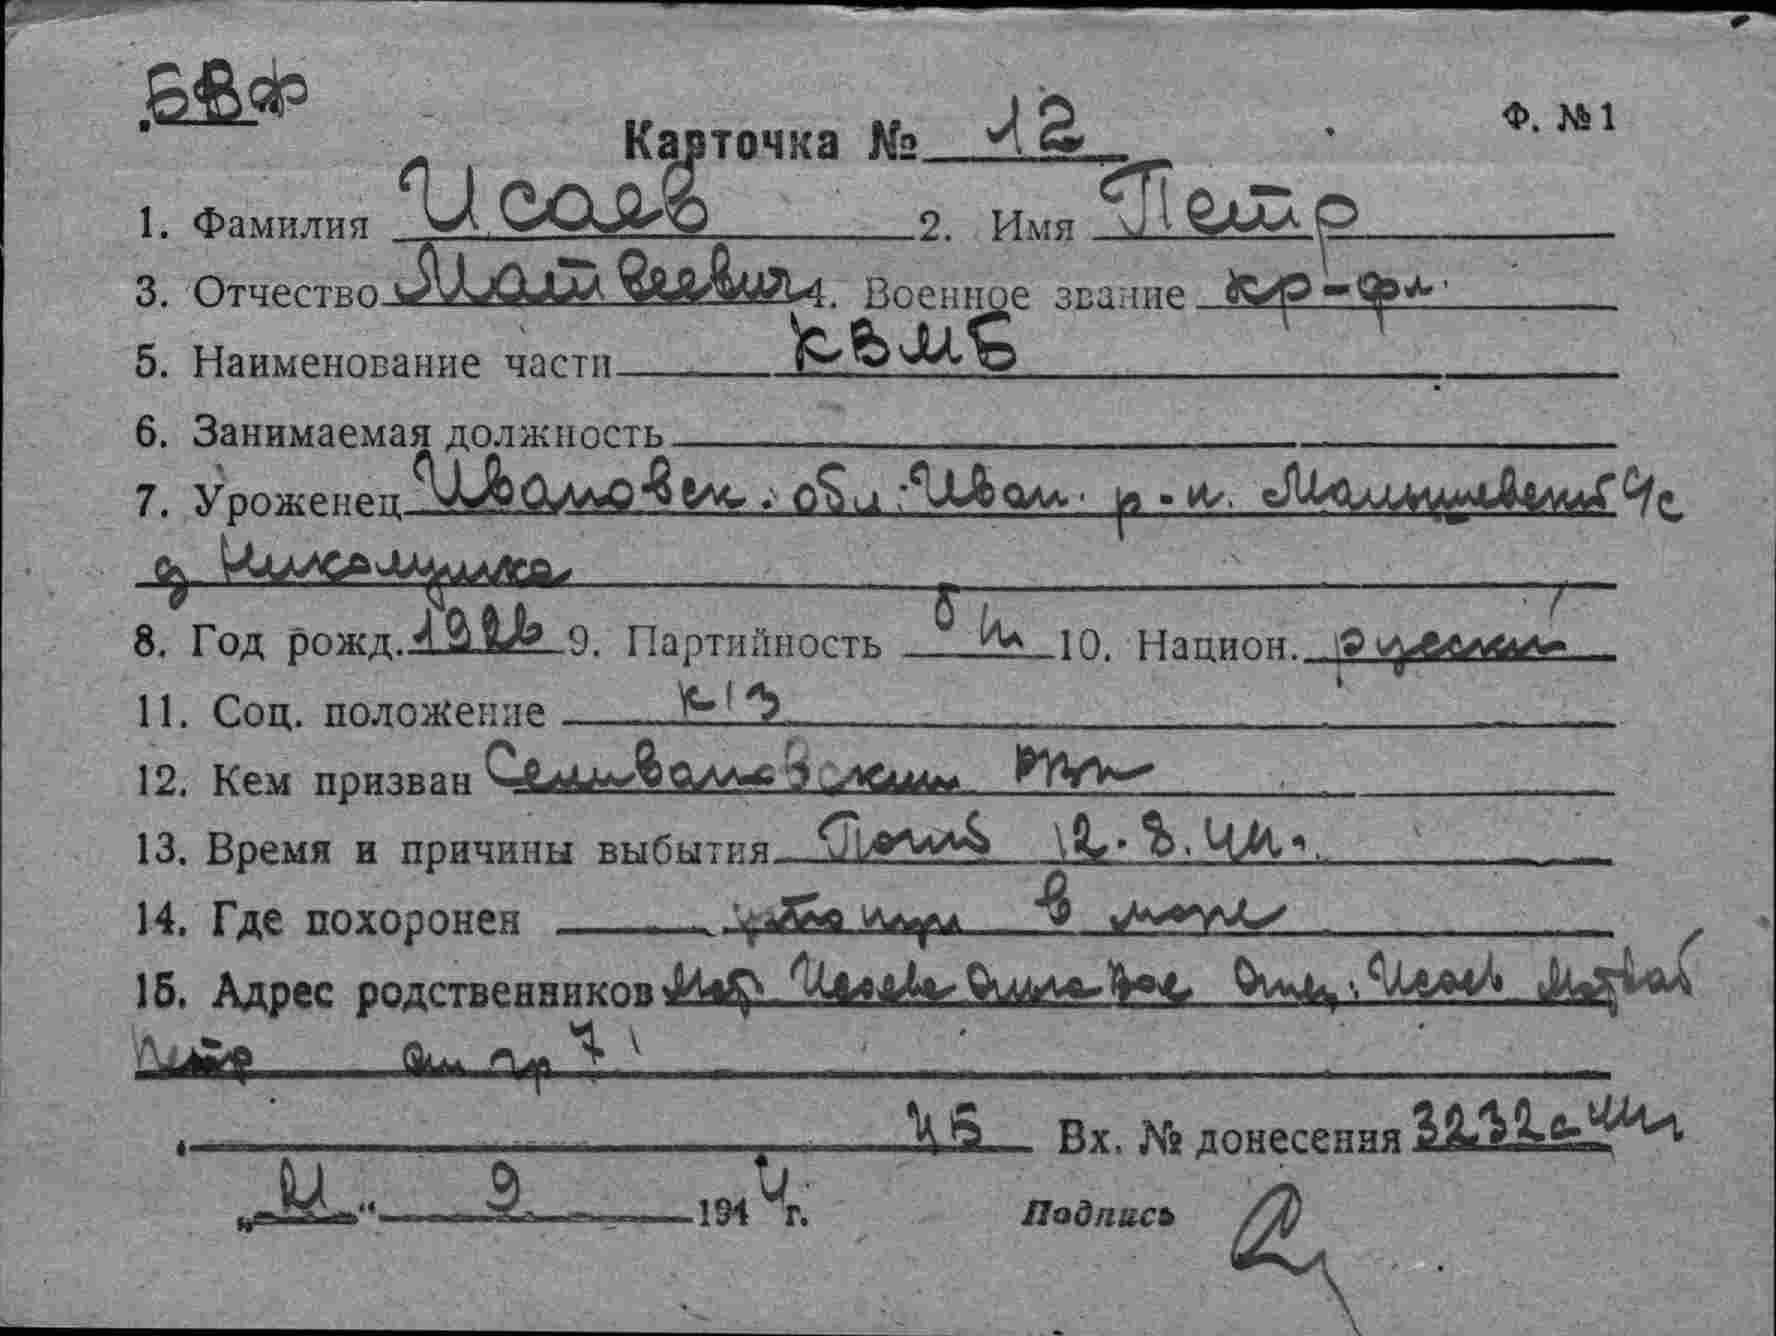 БВФ
Карточка № 12
Ф. № 1
1. Фамилия Исаев 2. Имя Петр
3. Отчество Матвеевич 4. Военное звание кр-фл.
5. Наименование части КВМБ
6. Занимаемая должность
7. Уроженец Ивановск. обл. Иван. р-н. с/с
д
8. Год рожд. 1926 9. Партийность б/п 10. Национ. русский
11. Соц. положение к/з
12. Кем призван
13. Время и причины выбытия Погиб 12.8.44г.
14. Где похоронен утонул в море
15. Адрес родственников Мать Исаева Отец: Исаев Матвей
Петр
Вх. № донесения 3232с 44г
" " 9 1944 г. Подпись